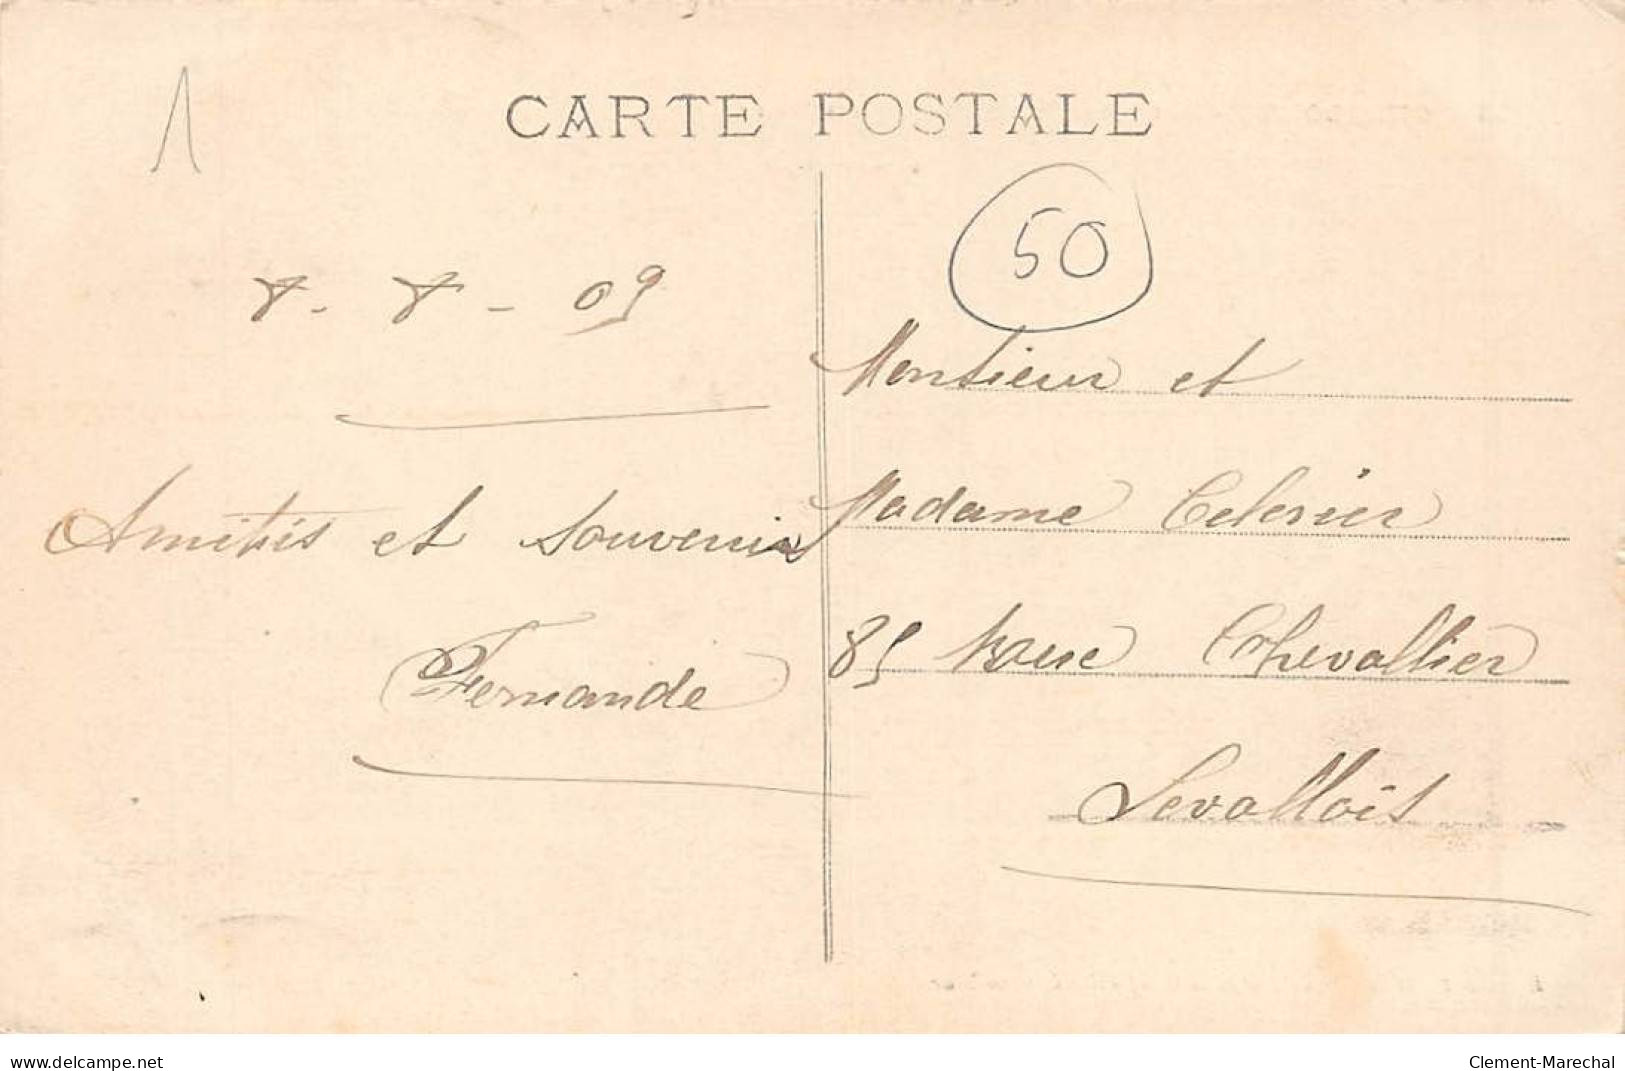 CARTE POSTALE
1
50
8 - 8 - 09
Amitiés et souvenirs
Fernande
Monsieur et
Madame Celerier
85 Rue Chevallier
Levallois
www.delcampe.net
Clement-Marechal